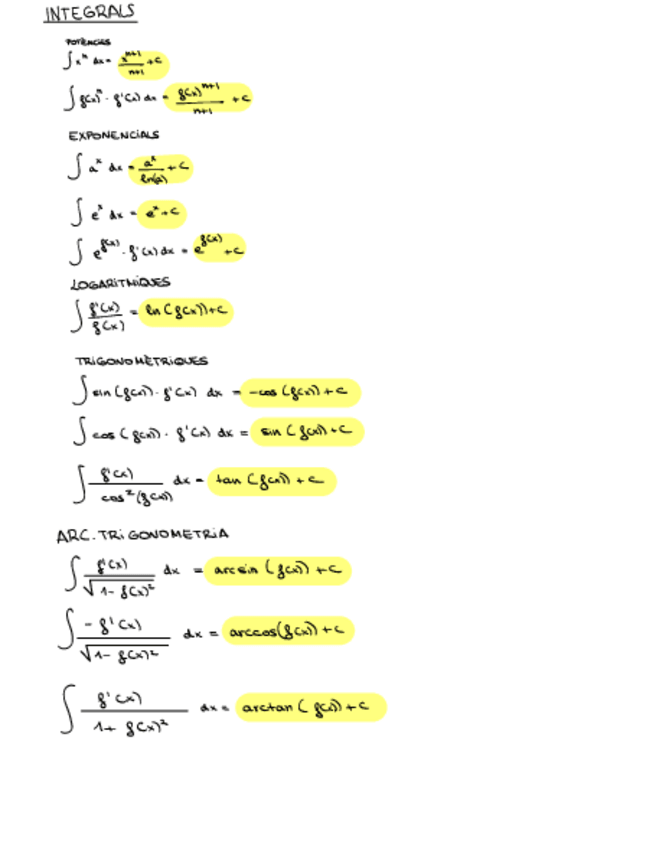 INTEGRALS
POTÈNCIES
∫ xⁿ dx = xⁿ⁺¹/n+1 + C
∫ f(x)ⁿ · f'(x) dx = f(x)ⁿ⁺¹/n+1 + C
EXPONENCIALS
∫ aˣ dx = aˣ/ln(a) + C
∫ eˣ dx = eˣ + C
∫ e^f(x) · f'(x) dx = e^f(x) + C
LOGARÍTMIQUES
∫ f'(x)/f(x) = ln(f(x)) + C
TRIGONOMÈTRIQUES
∫ sin(f(x)) · f'(x) dx = -cos(f(x)) + C
∫ cos(f(x)) · f'(x) dx = sin(f(x)) + C
∫ f'(x)/cos²(f(x)) dx = tan(f(x)) + C
ARC.TRIGONOMETRIA
∫ f'(x)/√(1 - f(x)²) dx = arcsin(f(x)) + C
∫ -f'(x)/√(1 - f(x)²) dx = arccos(f(x)) + C
∫ f'(x)/1 + f(x)² dx = arctan(f(x)) + C